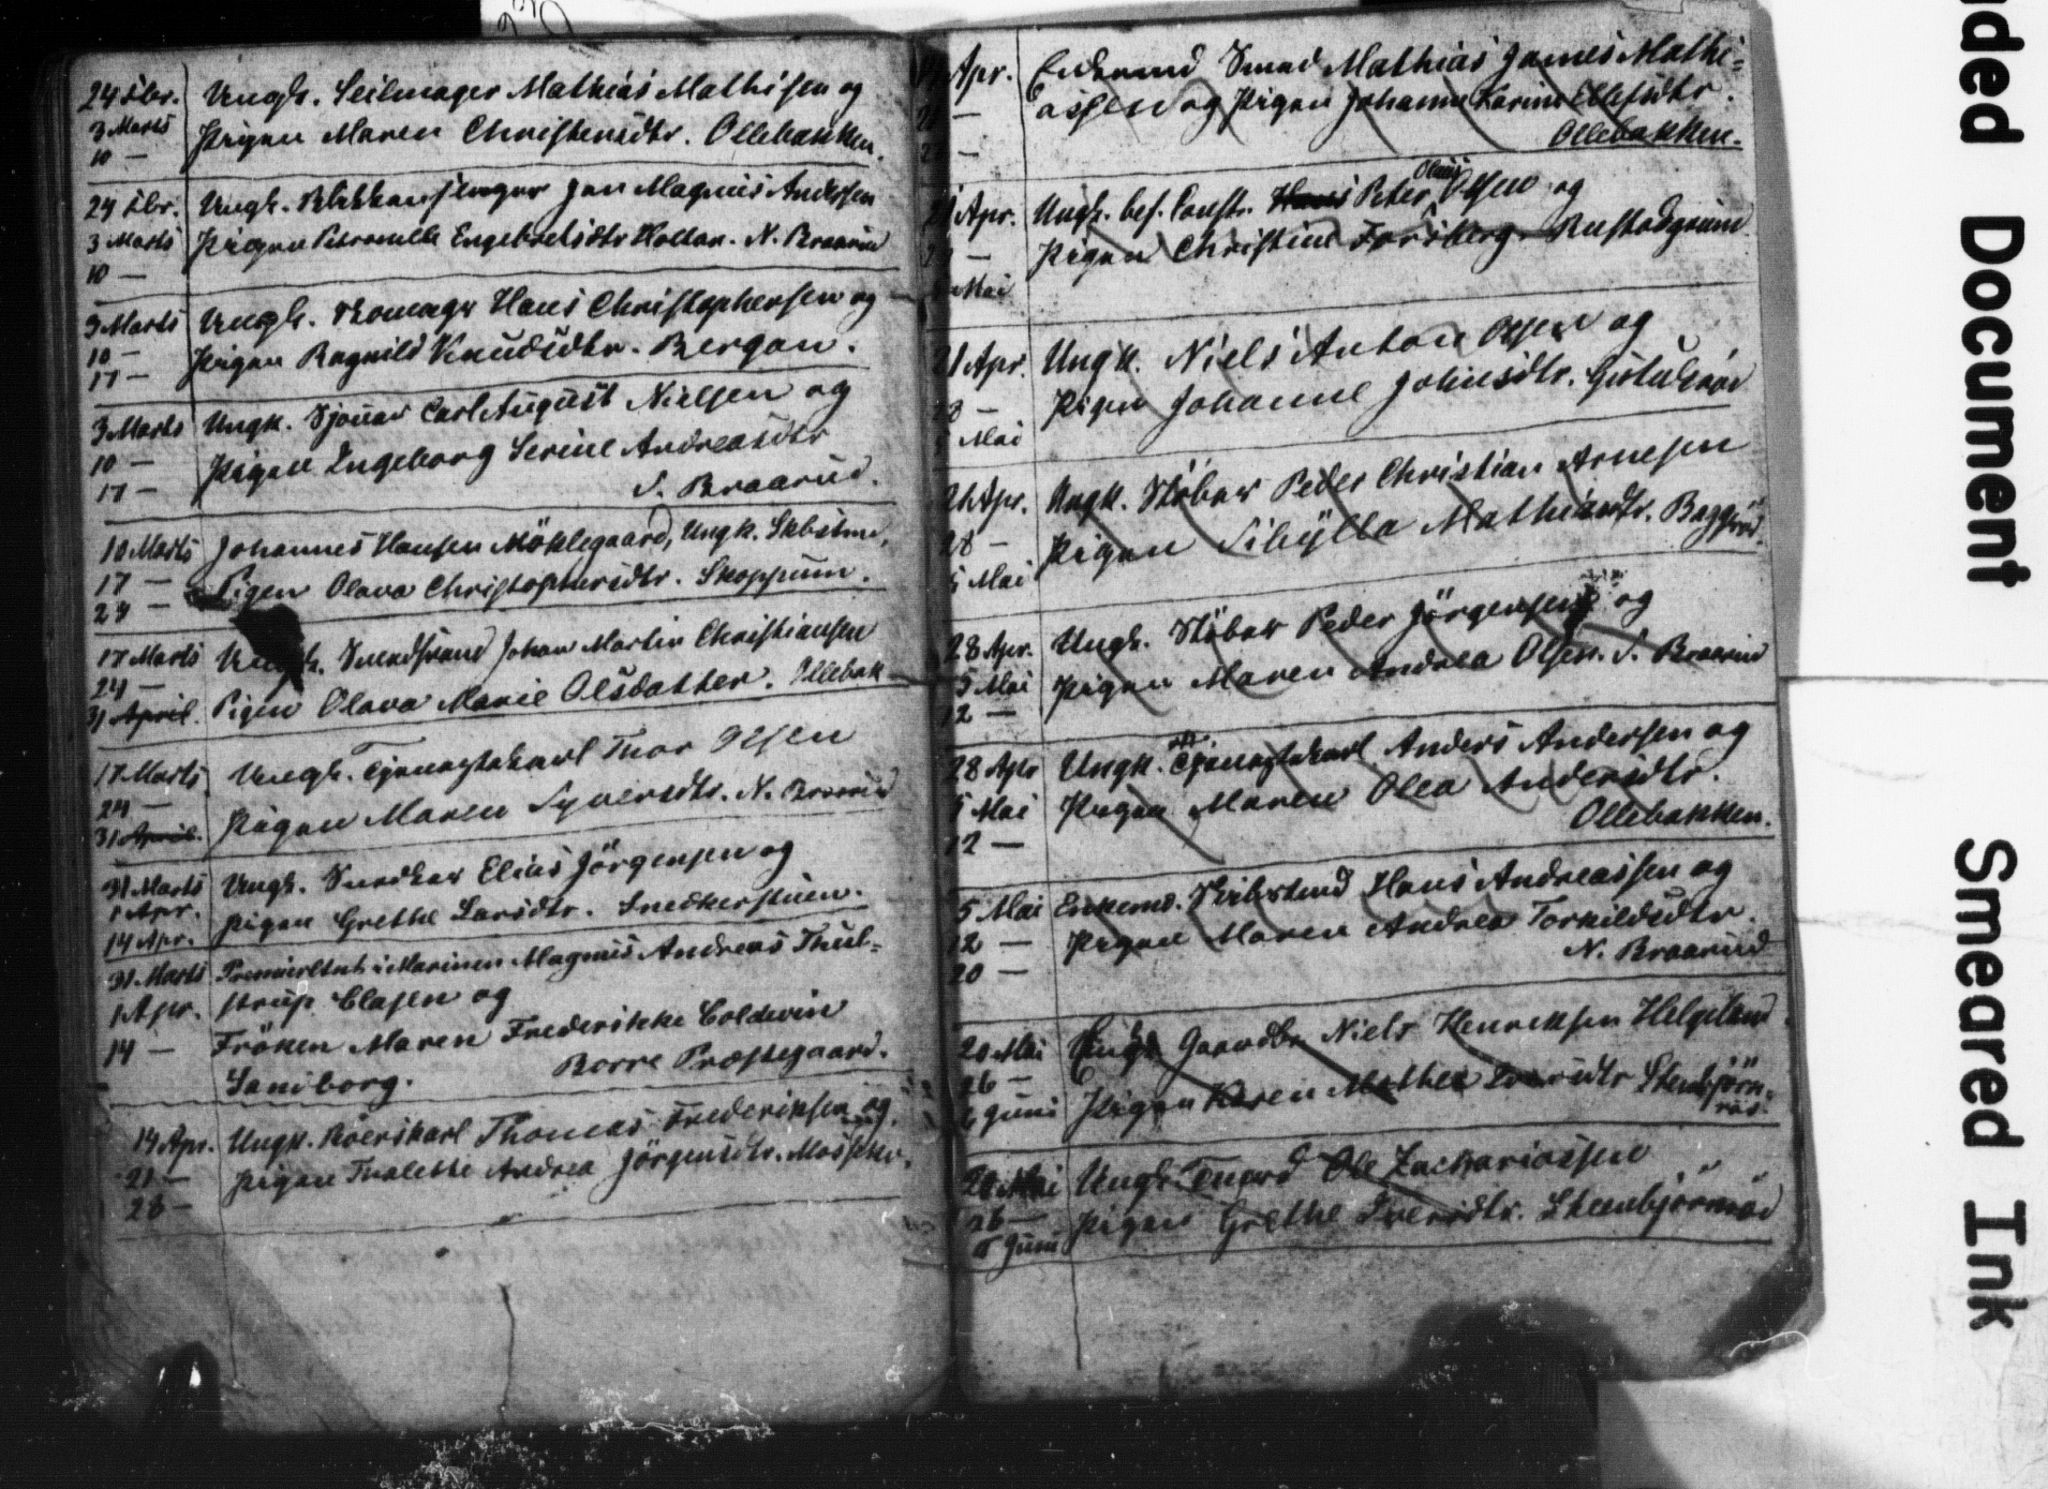 24 Fbr. Ungk. Seilmager Mathias Mathisen og
3 Marts Pigen Maren Christensdtr. Ollebakken.
10 —
24 Fbr. Ungk. Blikkenslager Jan Magnus Andersen
3 Marts Pigen Petronelle Engebretsdtr Holtan. N. Braarud
10 —
3 Marts Ungk. Skomagr Hans Christophersen og
10 — Pigen Ragnild Knudsdtr. Bergan.
17 —
3 Marts Ungk. Sjømd Carl August Nielsen og
10 — Pigen Ingeborg Serine Andreasdtr
17 — S. Braarud.
10 Marts Johannes Hansen Möklegaard, Ungk. Skbstmd,
17 — Pigen Olava Christophersdtr. Skoppum.
24 —
17 Marts Ungk. Johan Martin Christiansen
24 — Pigen Olava Marie Olsdatter. Ollebak
31 April.
17 Marts Ungk. Tjenestekarl Thor Olsen
24 — Pigen Maren Syversdtr. N. Braarud
31 April.
31 Marts Ungk. Snedker Elias Jörgensen og
1 Apr. Pigen Grethe Larsdtr. Snedkerstuen.
14 Apr.
31 Marts Premierltnt i Marinen Magnus Andreas Thul=
1 Apr. strup Clasen og
14 — Fröken Maren Frederikke Coldevin
Borre Præstegaard.
Saniborg.
14 Apr. Ungk. Thomas Frederiksen og
21 — Pigen Thalette Andrea Jörgensdtr.
28 —
Apr. Enkemd Smed Mathias James Mathi=
— assen og Pigen Johanne Karine Ellefsdtr.
— Ollebakken.
21 Apr. Ungk. bef. Const. Hans Peter Olaus Olsen og
— Pigen Christine Forsberg. Rustadgrind
Mai
21 Apr. Ungk. Niels Anton Olsen og
28 — Pigen Johanne Johnsdtr.
5 Mai
21 Apr. Ungk. Stöber Peder Christian Arnesen
28 — Pigen Sibylla Mathiasdtr. Baggeröd.
5 Mai
28 Apr. Ungk. Stöber Peder Jörgensen og
5 Mai Pigen Maren Andrea Olsen. S. Braarud
12 —
28 Apr Ungk. Tjenestekarl Anders Andersen og
5 Mai Pigen Maren Olea Andersdtr.
12 — Ollebakken.
5 Mai Enkemd. Skibstmd Hans Andreassen og
12 — Pigen Maren Andrea Torkildsdtr.
20 — N. Braarud
20 Mai Gaardbr. Niels Henriksen Helgeland
26 — Pigen Karen Mathea Iversdtr Steenbjörn=
2 Juni röd.
20 Mai Ungk. Ole Zachariassen
26 — Pigen Grethe Iversdtr. Steenbjörnröd
2 Juni
nded Document Smeared Ink